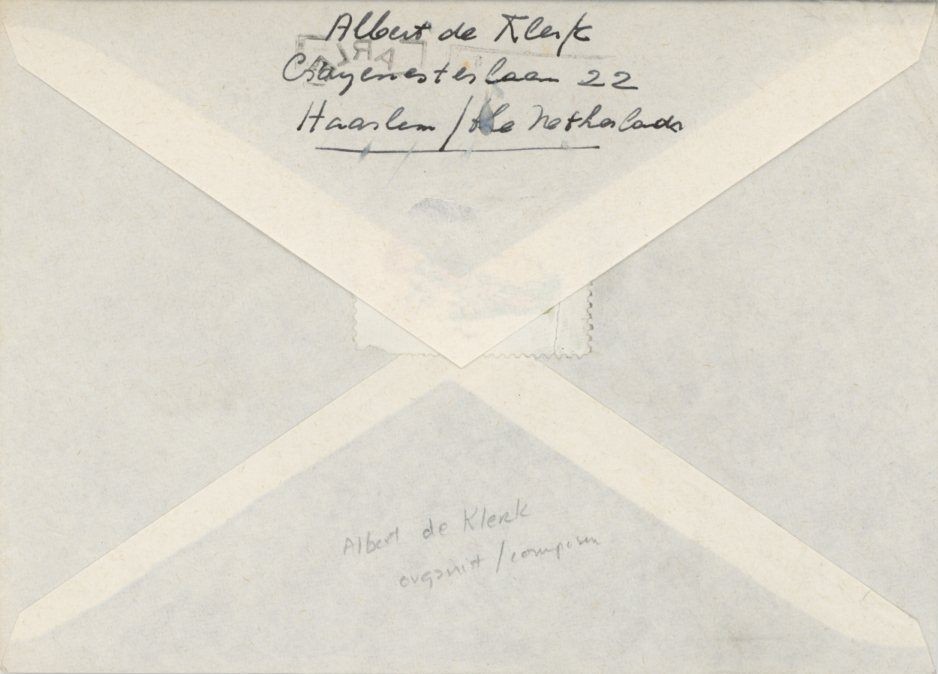 Albert de Klerk
Crayenesterlaan 22
Haarlem / the Netherlands
Albert de Klerk
organist / composer